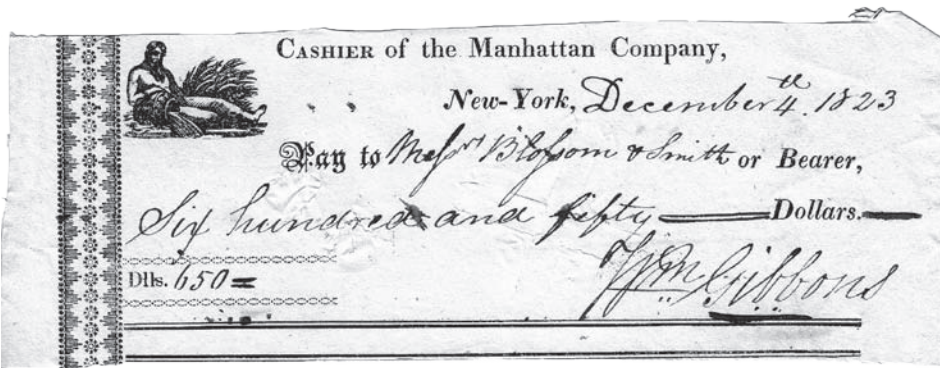 CASHIER of the Manhattan Company,
New-York, December 4th. 1823
Pay to Messrs Blossom & Smith or Bearer,
Six hundred and fifty Dollars.
Dlls. 650=
Wm Gibbons